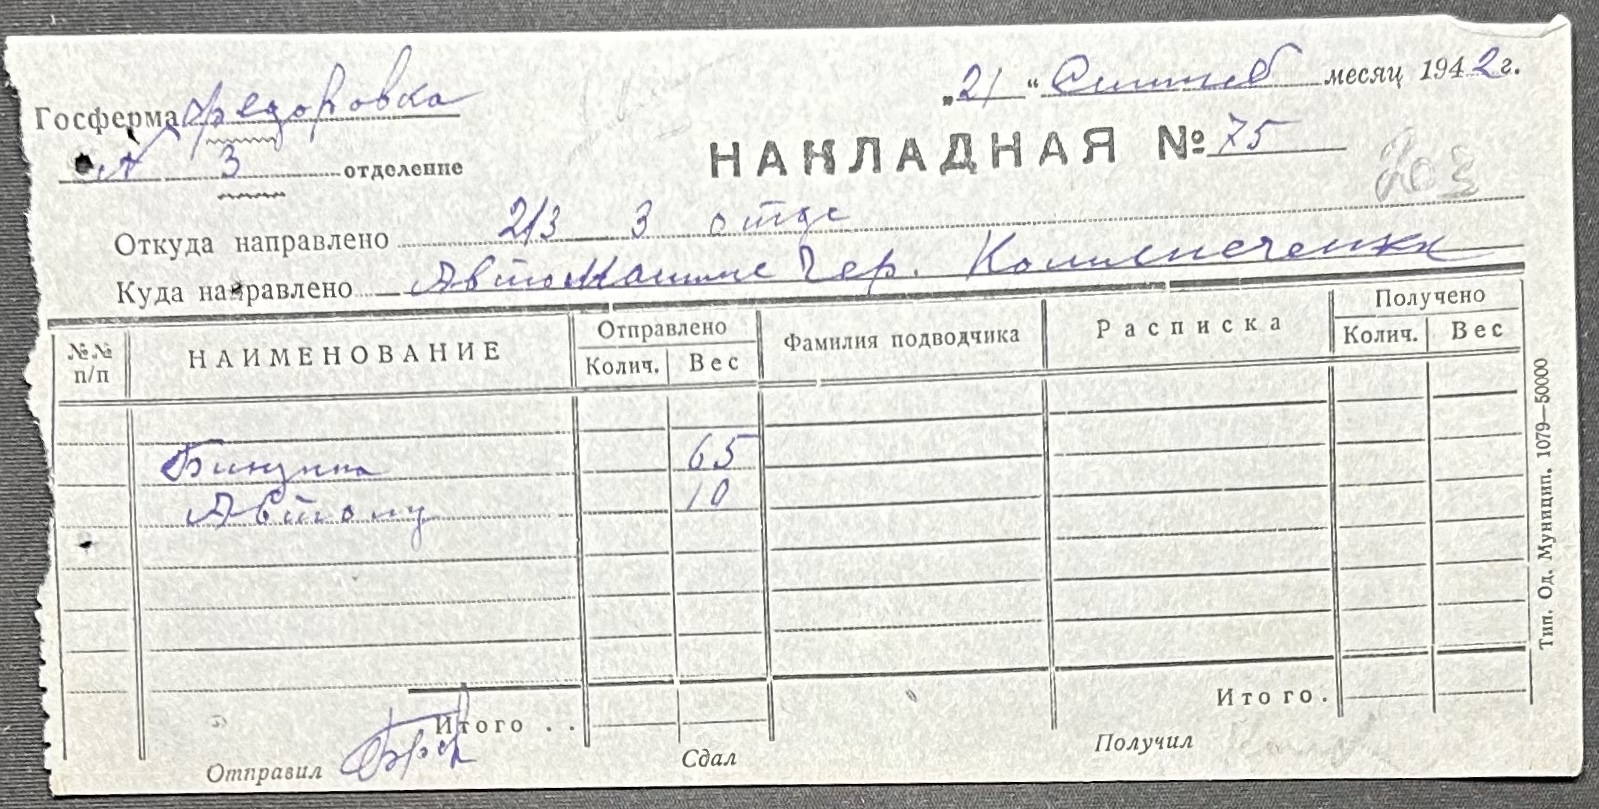 „21“ Сентяб месяц 1942 г.
Госферма Федоровка
№ 3 отделение
НАКЛАДНАЯ № 75
203
Откуда направлено 2/3 3 отде
Куда направлено Автомашине Чер.
№№ п/п НАИМЕНОВАНИЕ Отправлено Фамилия подводчика Расписка Получено
Колич. Вес Колич. Вес
Бинзина 65
Автолу 10
Итого . . Итого .
Отправил Сдал Получил
Тип. Од. Муницип. 1079—50000